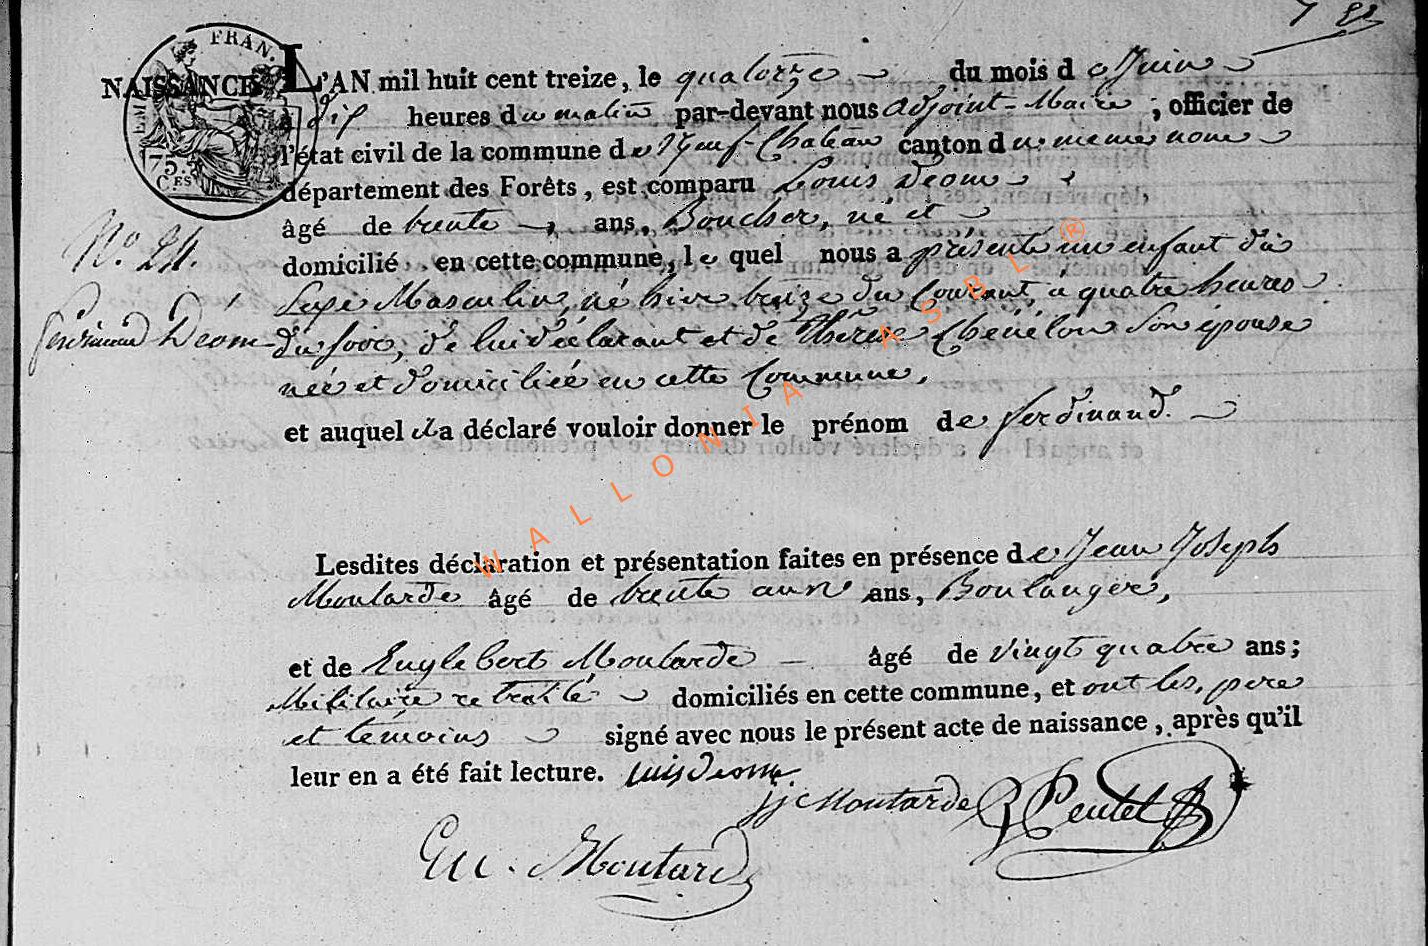 FRAN.
75.
C.ES
NAISSANCE L'AN mil huit cent treize, le quatorze du mois de Juin
à dix heures du matin par-devant nous adjoint-Maire, officier de
l'état civil de la commune de Neuf-Chateau canton du meme nom
département des Forêts, est comparu Louis Deom
âgé de trente ans, Boucher, né et
No. 24.
domicilié en cette commune, le quel nous a présenté un enfant du
Sexe Masculin, né hier treize du Courant, à quatre heures
ferdinand Déom
du soir, de lui déclarant et de Thérèse Chénélon Son épouse
née et domiciliée en cette Commune,
et auquel il a déclaré vouloir donner le prénom de ferdinand.
WALLONIA ASBL ®
Lesdites déclaration et présentation faites en présence de Jean Joseph
Moutarde âgé de trente ans, Boulanger,
et de Englebert Moutarde âgé de vingt quatre ans;
Militaire retraité domiciliés en cette commune, et ont les, pere
et témoins signé avec nous le présent acte de naissance, après qu'il
leur en a été fait lecture. Luis deom
jj Moutarde
En. Moutard